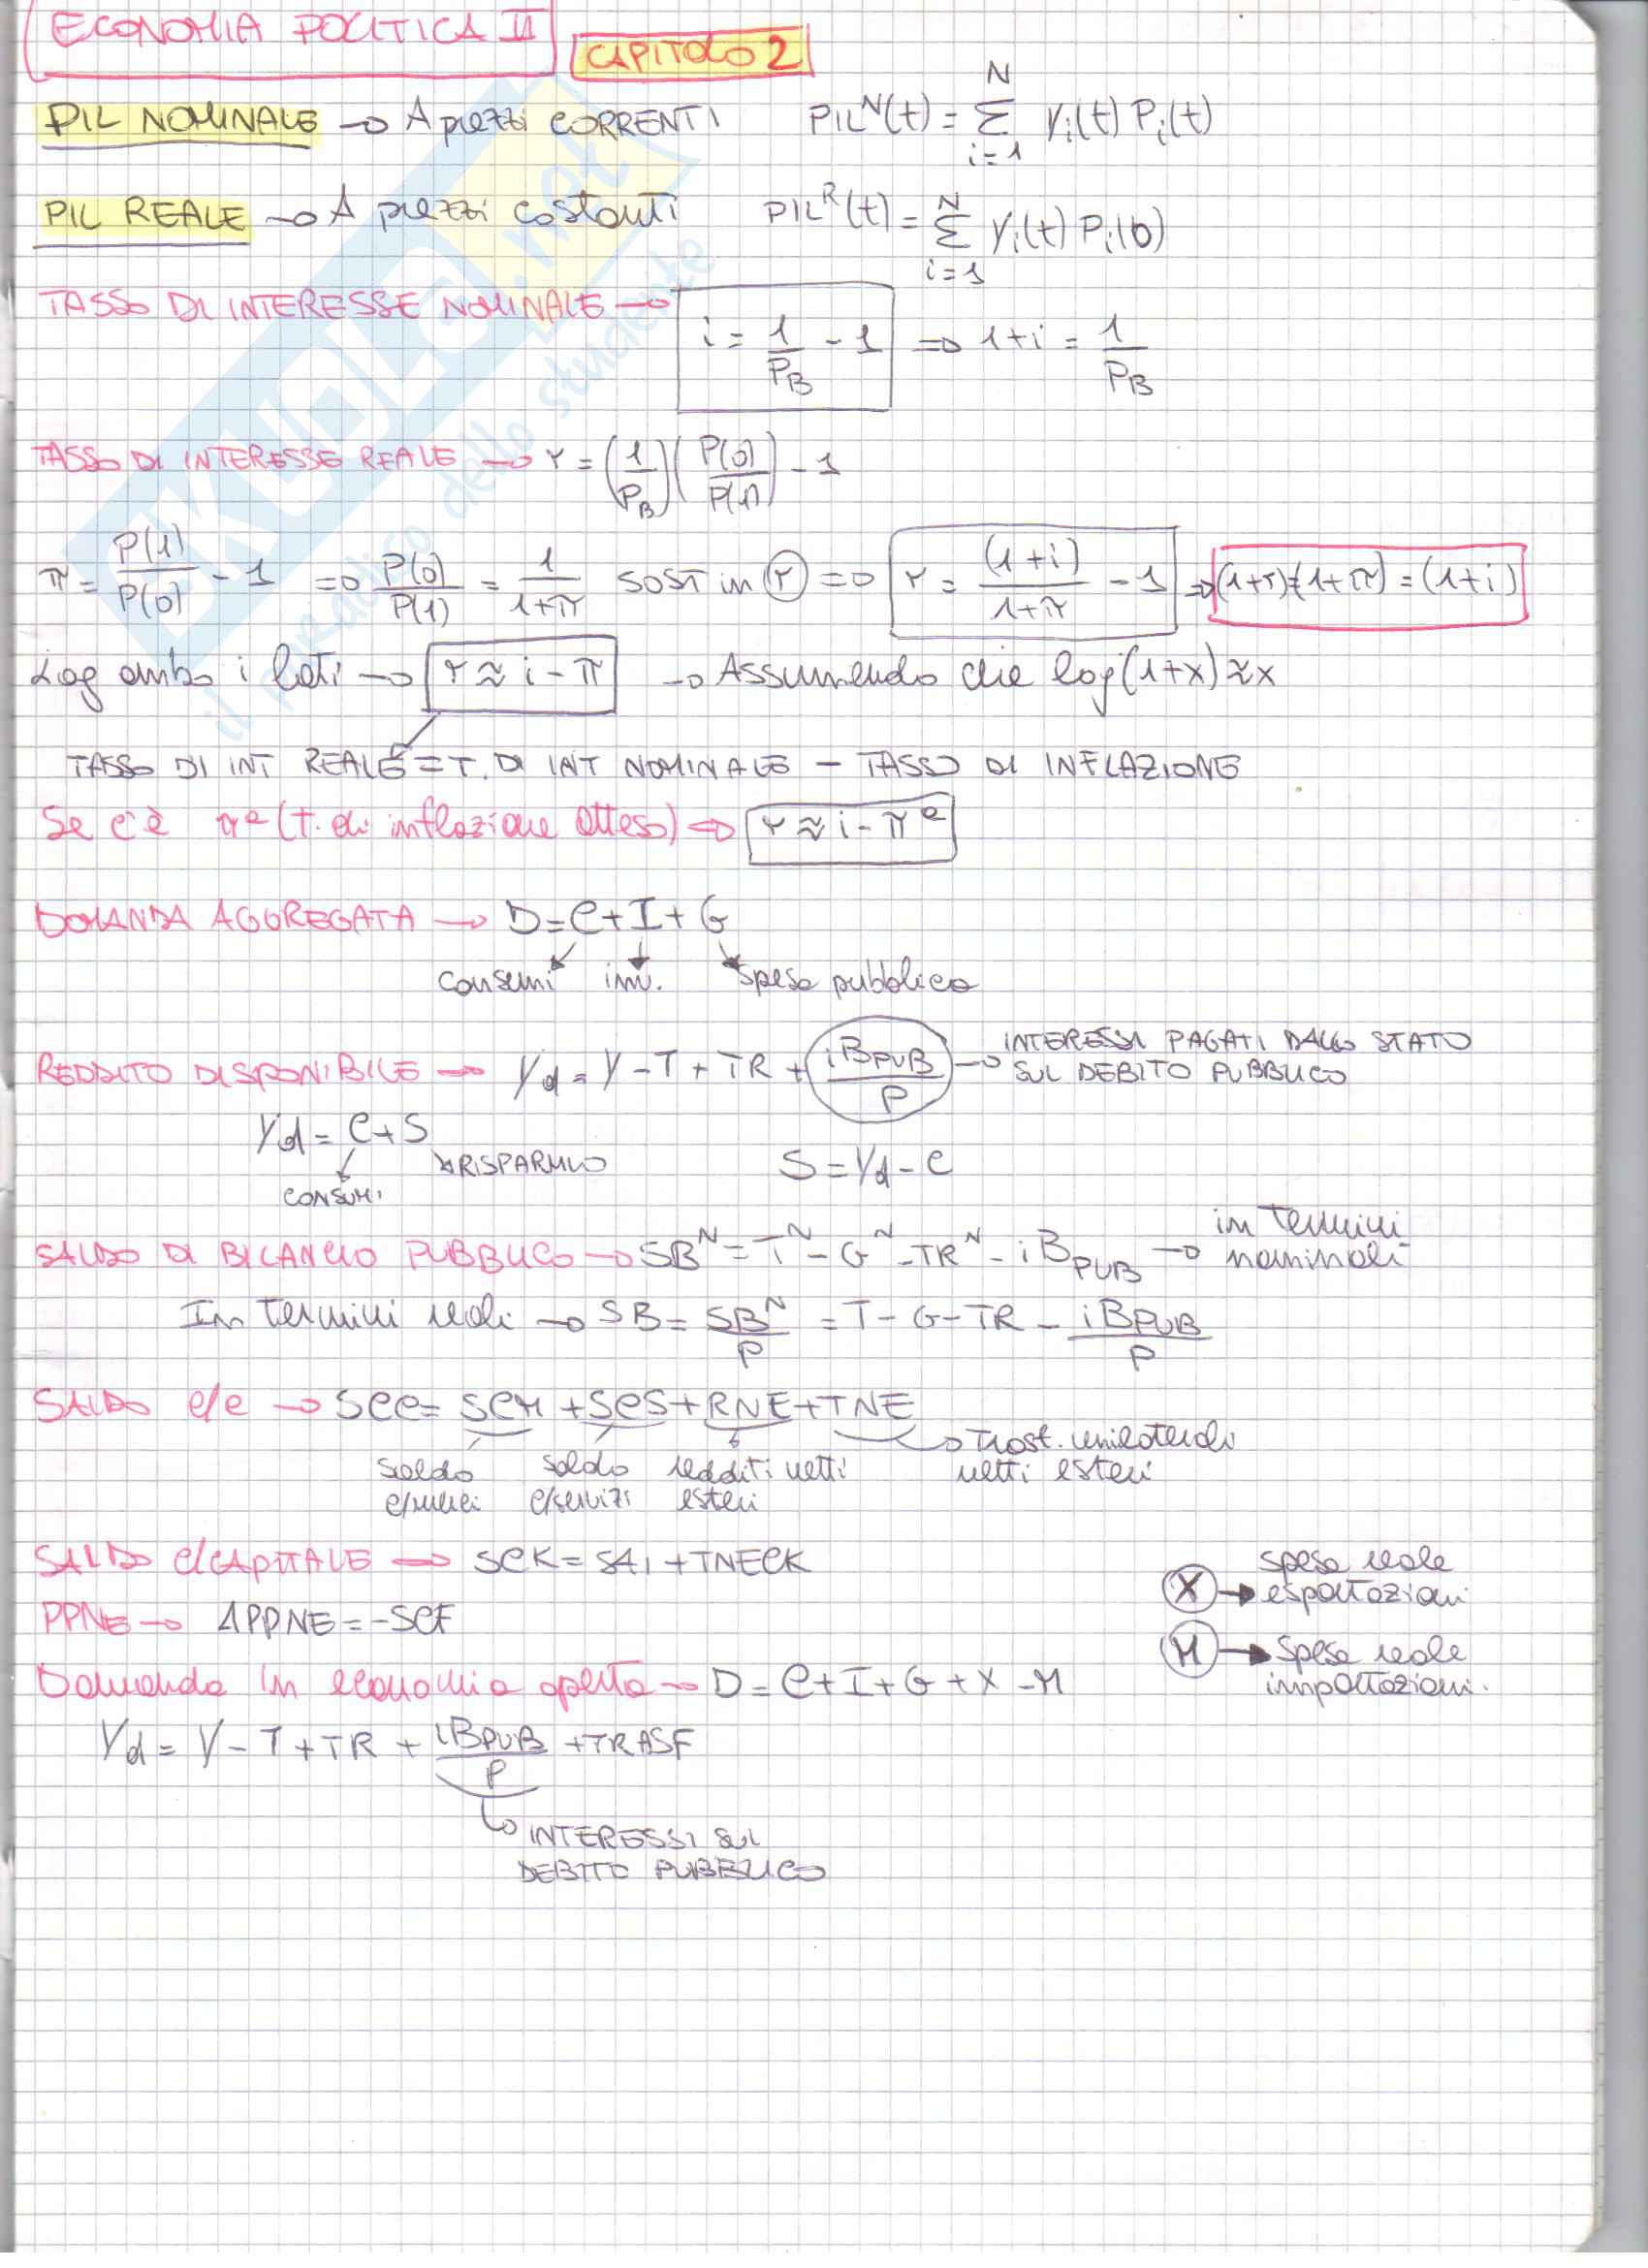 ECONOMIA POLITICA II
CAPITOLO 2
PIL NOMINALE → A prezzi CORRENTI PIL^N(t) = Σ_{i=1}^{N} Yi(t) Pi(t)
PIL REALE → A prezzi costanti PIL^R(t) = Σ_{i=1}^{N} Yi(t) Pi(0)
TASSO DI INTERESSE NOMINALE → i = 1/P_B - 1 ⇒ 1+i = 1/P_B
TASSO DI INTERESSE REALE → r = (1/P_B)(P(0)/P(1)) - 1
π = P(1)/P(0) - 1 ⇒ P(0)/P(1) = 1/(1+π) SOST in (r) ⇒ r = (1+i)/(1+π) - 1 ⇒ (1+r)·(1+π) = (1+i)
Log ambo i lati → r ≈ i - π → Assumendo che log(1+x) ≈ x
TASSO DI INT REALE = T. DI INT NOMINALE - TASSO DI INFLAZIONE
Se c'è π^e (T. di inflazione atteso) ⇒ r ≈ i - π^e
DOMANDA AGGREGATA → D = C+I+G
Consumi inv. Spesa pubblica
REDDITO DISPONIBILE → Yd = Y-T+TR+ iB_PUB/P → INTERESSI PAGATI DALLO STATO
SUL DEBITO PUBBLICO
Yd = C+S
RISPARMIO S = Yd - C
CONSUMI
SALDO DI BILANCIO PUBBLICO → SB^N = T^N - G^N - TR^N - iB_PUB → in termini
nominali
In termini reali → SB = SB^N/P = T-G-TR - iB_PUB/P
SALDO c/c → SCC = SCM + SCS + RNE + TNE
saldo saldo redditi netti Trasf. unilaterali
c/merci c/servizi esteri netti esteri
SALDO C/CAPITALE → SCK = SAI + TNECK
PPNE → ΔPPNE = -SCF
X → spesa reale
esportazioni
M → spesa reale
importazioni.
Domanda in economia aperta → D = C+I+G+X-M
Yd = Y-T+TR + iB_PUB/P + TRASF
INTERESSI SUL
DEBITO PUBBLICO
SKUOLA.net
il paradiso dello studente